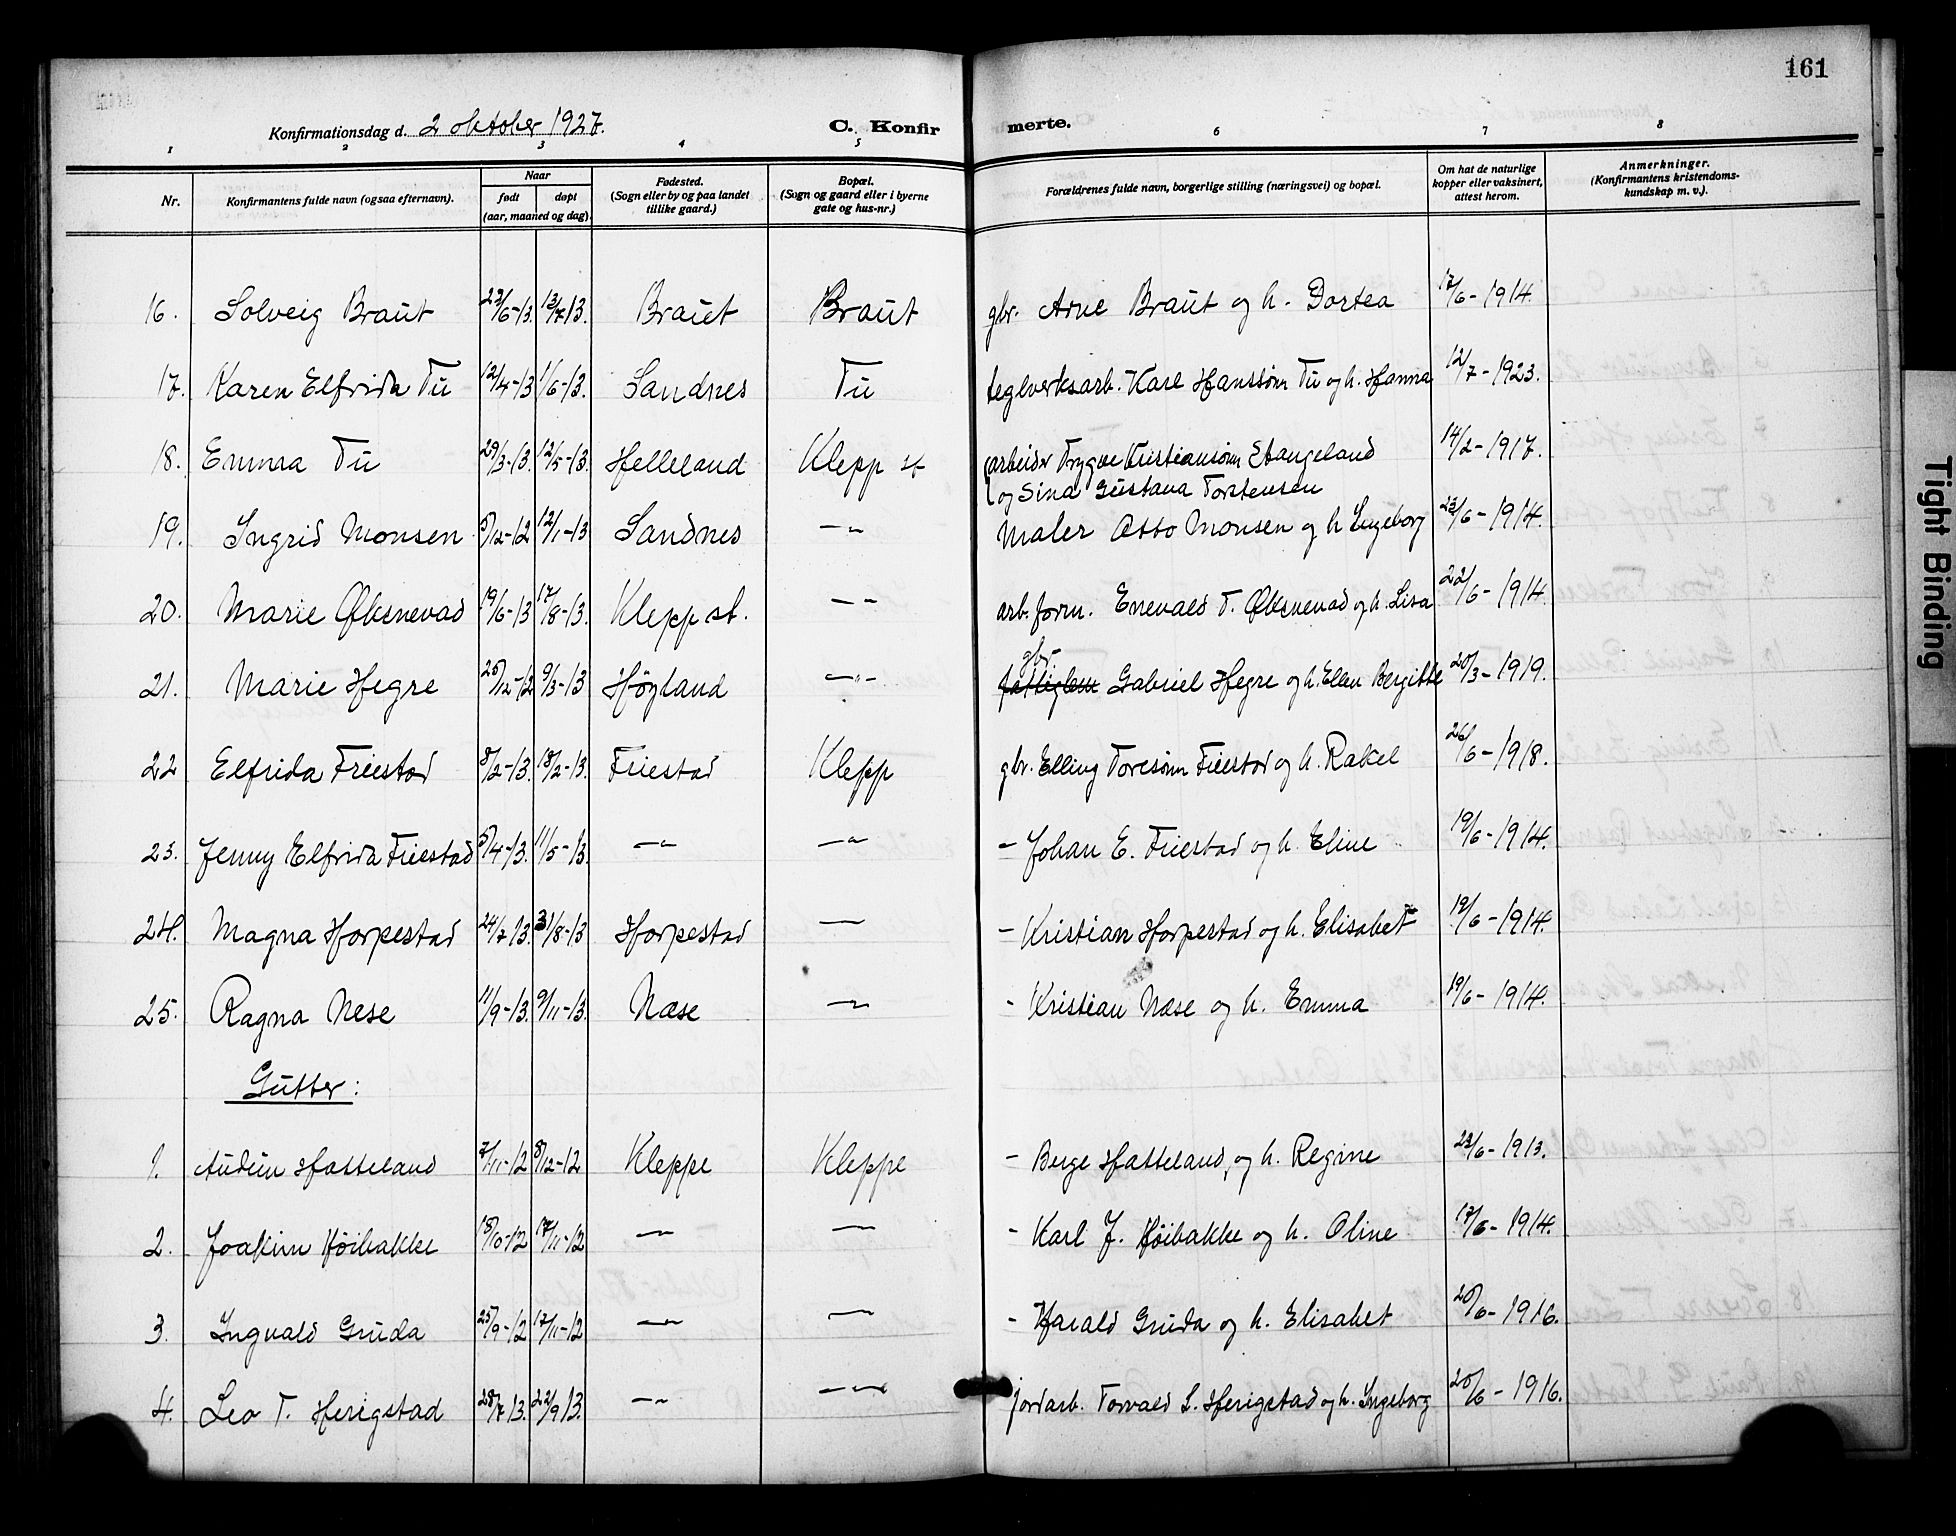 161
Konfirmationsdag d. 2 oktober 1927. C. Konfirmerte.
1 2 3 4 5 6 7 8
Nr. Konfirmantens fulde navn (ogsaa efternavn). Naar født døpt (aar, maaned og dag). Fødested. (Sogn eller by og paa landet tillike gaard.) Bopæl. (Sogn og gaard eller i byerne gate og hus-nr.) Forældrenes fulde navn, borgerlige stilling (næringsvei) og bopæl. Om hat de naturlige kopper eller vaksinert, attest herom. Anmerkninger. (Konfirmantens kristendomskundskap m. v.).
16. Solveig Braut 23/6-13. 13/7-13. Braut Braut gbr. Arne Braut og h. Dortea 17/6-1914.
17. Karen Elfrida Tu 12/4-13 1/6-13. Sandnes Tu teglverksarb. Karl Hanssønn Tu og h. Hanna 12/7-1923.
18. Emma Tu 29/3-13. 12/5-13. Helleland Klepp st (arbeider Trygve Kristiansønn Stangeland 14/2-1917.
og Sina Gustava Torstensen
19. Ingrid Monsen 5/12-12 12/1-13 Sandnes -"- Maler Otto Monsen og h Ingeborg 23/6-1914.
20. Marie Øksnevad 19/6-13 17/8-13. Klepp st. -"- arb. form. Enevald T. Øksnevad og h. Lisa 22/6-1914.
gbr
21. Marie Hegre 25/12-12 9/3-13 Høyland -"- fattiglem Gabriel Hegre og h. Ellen Bergitte 20/3-1919.
22 Elfrida Friestad 8/2-13. 18/2-13. Friestad Klepp gbr. Elling Toresønn Friestad og h. Rakel 26/6-1918.
23. Jenny Elfrida Friestad 5/4-13. 11/5-13. -"- -"- - Johan E. Friestad og h. Eline 19/6-1914.
24. Magna Horpestad 24/7-13. 31/8-13 Horpestad -"- - Kristian Horpestad og h. Elisabet 19/6-1914.
25. Ragna Nese 11/9-13. 9/11-13. Næse -"- - Kristian Næse og h. Emma 19/6-1914.
Gutter:
1. Audun Hatteland 7/11-12 8/12-12 Kleppe Kleppe - Berge Hatteland, og h. Regine 23/6-1913.
2. Joakim Høibakke 18/10-12 17/11-12 -"- -"- - Karl J. Høibakke og h. Oline 17/6-1914.
3. Ingvald Gruda 25/9-12 17/11-12 -"- -"- - Harald Gruda og h. Elisabet 20/6-1916.
4. Leo T. Herigstad 28/7-13. 22/9 13. -"- -"- jordarb. Torvald S. Herigstad og h. Ingeborg 20/6-1916.
Tight Binding